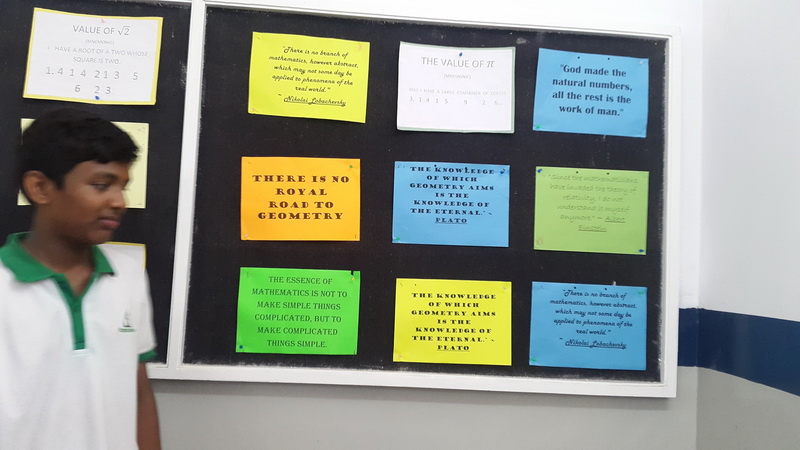 VALUE OF √2
(MNEMONIC)
I HAVE A ROOT OF A TWO WHOSE
SQUARE IS TWO.
1. 4 1 4 2 1 3 5
6 2 3
"There is no branch of
mathematics, however abstract,
which may not some day be
applied to phenomena of the
real world."
~ Nikolai Lobachevsky
THE VALUE OF π
(MNEMONIC)
3. 1 4 1 5 9 2 6
"God made the
natural numbers,
all the rest is the
work of man."
THERE IS NO
ROYAL
ROAD TO
GEOMETRY
THE KNOWLEDGE
OF WHICH
GEOMETRY AIMS
IS THE
KNOWLEDGE OF
THE ETERNAL." ~
PLATO
"Since the mathematicians
have invaded the theory of
relativity, I do not
understand it myself
anymore." — Albert
Einstein
THE ESSENCE OF
MATHEMATICS IS NOT TO
MAKE SIMPLE THINGS
COMPLICATED, BUT TO
MAKE COMPLICATED
THINGS SIMPLE.
THE KNOWLEDGE
OF WHICH
GEOMETRY AIMS
IS THE
KNOWLEDGE OF
THE ETERNAL." ~
PLATO
"There is no branch of
mathematics, however abstract,
which may not some day be
applied to phenomena of the
real world."
~ Nikolai Lobachevsky